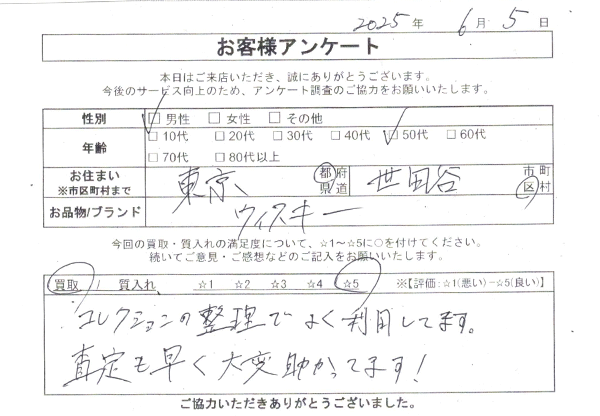 2025年 6月 5日
お客様アンケート
本日はご来店いただき、誠にありがとうございます。
今後のサービス向上のため、アンケート調査のご協力をお願いいたします。
性別 ☑ 男性 □ 女性 □ その他
年齢 □ 10代 □ 20代 □ 30代 □ 40代 ☑ 50代 □ 60代
□ 70代 □ 80代以上
お住まい ※市区町村まで 東京 都府県道 世田谷 市町区村
お品物/ブランド ウィスキー
今回の買取・質入れの満足度について、☆1～☆5に○を付けてください。
続いてご意見・ご感想などのご記入をお願いいたします。
買取 / 質入れ ☆1 ☆2 ☆3 ☆4 ☆5 ※【評価:☆1(悪い)−☆5(良い)】
コレクションの整理でよく利用してます。
査定も早く大変助かってます!
ご協力いただきありがとうございました。